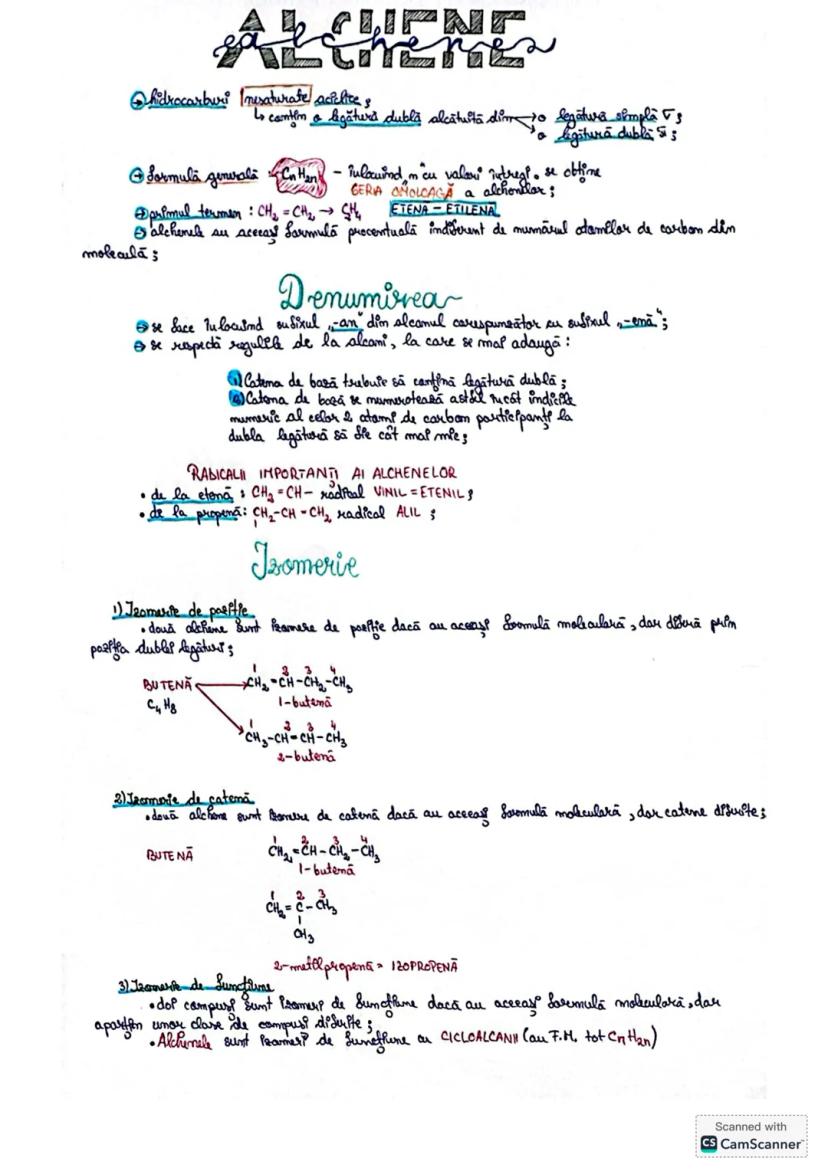 ALCHENE
alchenes
hidrocarburi nesaturate aciclice;
↳ conțin o legătură dublă alcătuită din → o legătură simplă σ;
→ o legătură dublă π;
formulă generală: CnH2n - înlocuind „n” cu valori întregi, se obține
SERIA OMOLOAGĂ a alchenelor;
primul termen: CH2 = CH2 → C2H4 ETENĂ - ETILENĂ
alchenele au aceeași formulă procentuală indiferent de numărul atomilor de carbon din
moleculă;
Denumirea
se face înlocuind sufixul „-an” din alcanul corespunzător cu sufixul „-enă”;
se respectă regulile de la alcani, la care se mai adaugă:
1) Catena de bază trebuie să conțină legătură dublă;
2) Catena de bază se numerotează astfel încât indicele
numeric al celor 2 atomi de carbon participanți la
dubla legătură să fie cât mai mic;
RADICALII IMPORTANȚI AI ALCHENELOR
• de la etenă: CH2 = CH- radical VINIL = ETENIL;
• de la propenă: CH2-CH=CH2 radical ALIL;
Izomerie
1) Izomerie de poziție
• două alchene sunt izomere de poziție dacă au aceeași formulă moleculară, dar diferă prin
poziția dublei legături;
1 2 3 4
BUTENĂ CH2=CH-CH2-CH3
C4H8 1-butenă
1 2 3 4
CH3-CH=CH-CH3
2-butenă
2) Izomerie de catenă
• două alchene sunt izomere de catenă dacă au aceeași formulă moleculară, dar catene diferite;
1 2 3 4
BUTENĂ CH2=CH-CH2-CH3
1-butenă
1 2 3
CH2=C-CH3
CH3
2-metilpropenă = IZOPROPENĂ
3) Izomerie de funcțiune
• doi compuși sunt izomeri de funcțiune dacă au aceeași formulă moleculară, dar
aparțin unor clase de compuși diferite;
• Alchenele sunt izomeri de funcțiune cu CICLOALCANII (au F.M. tot CnH2n)
Scanned with
CS CamScanner